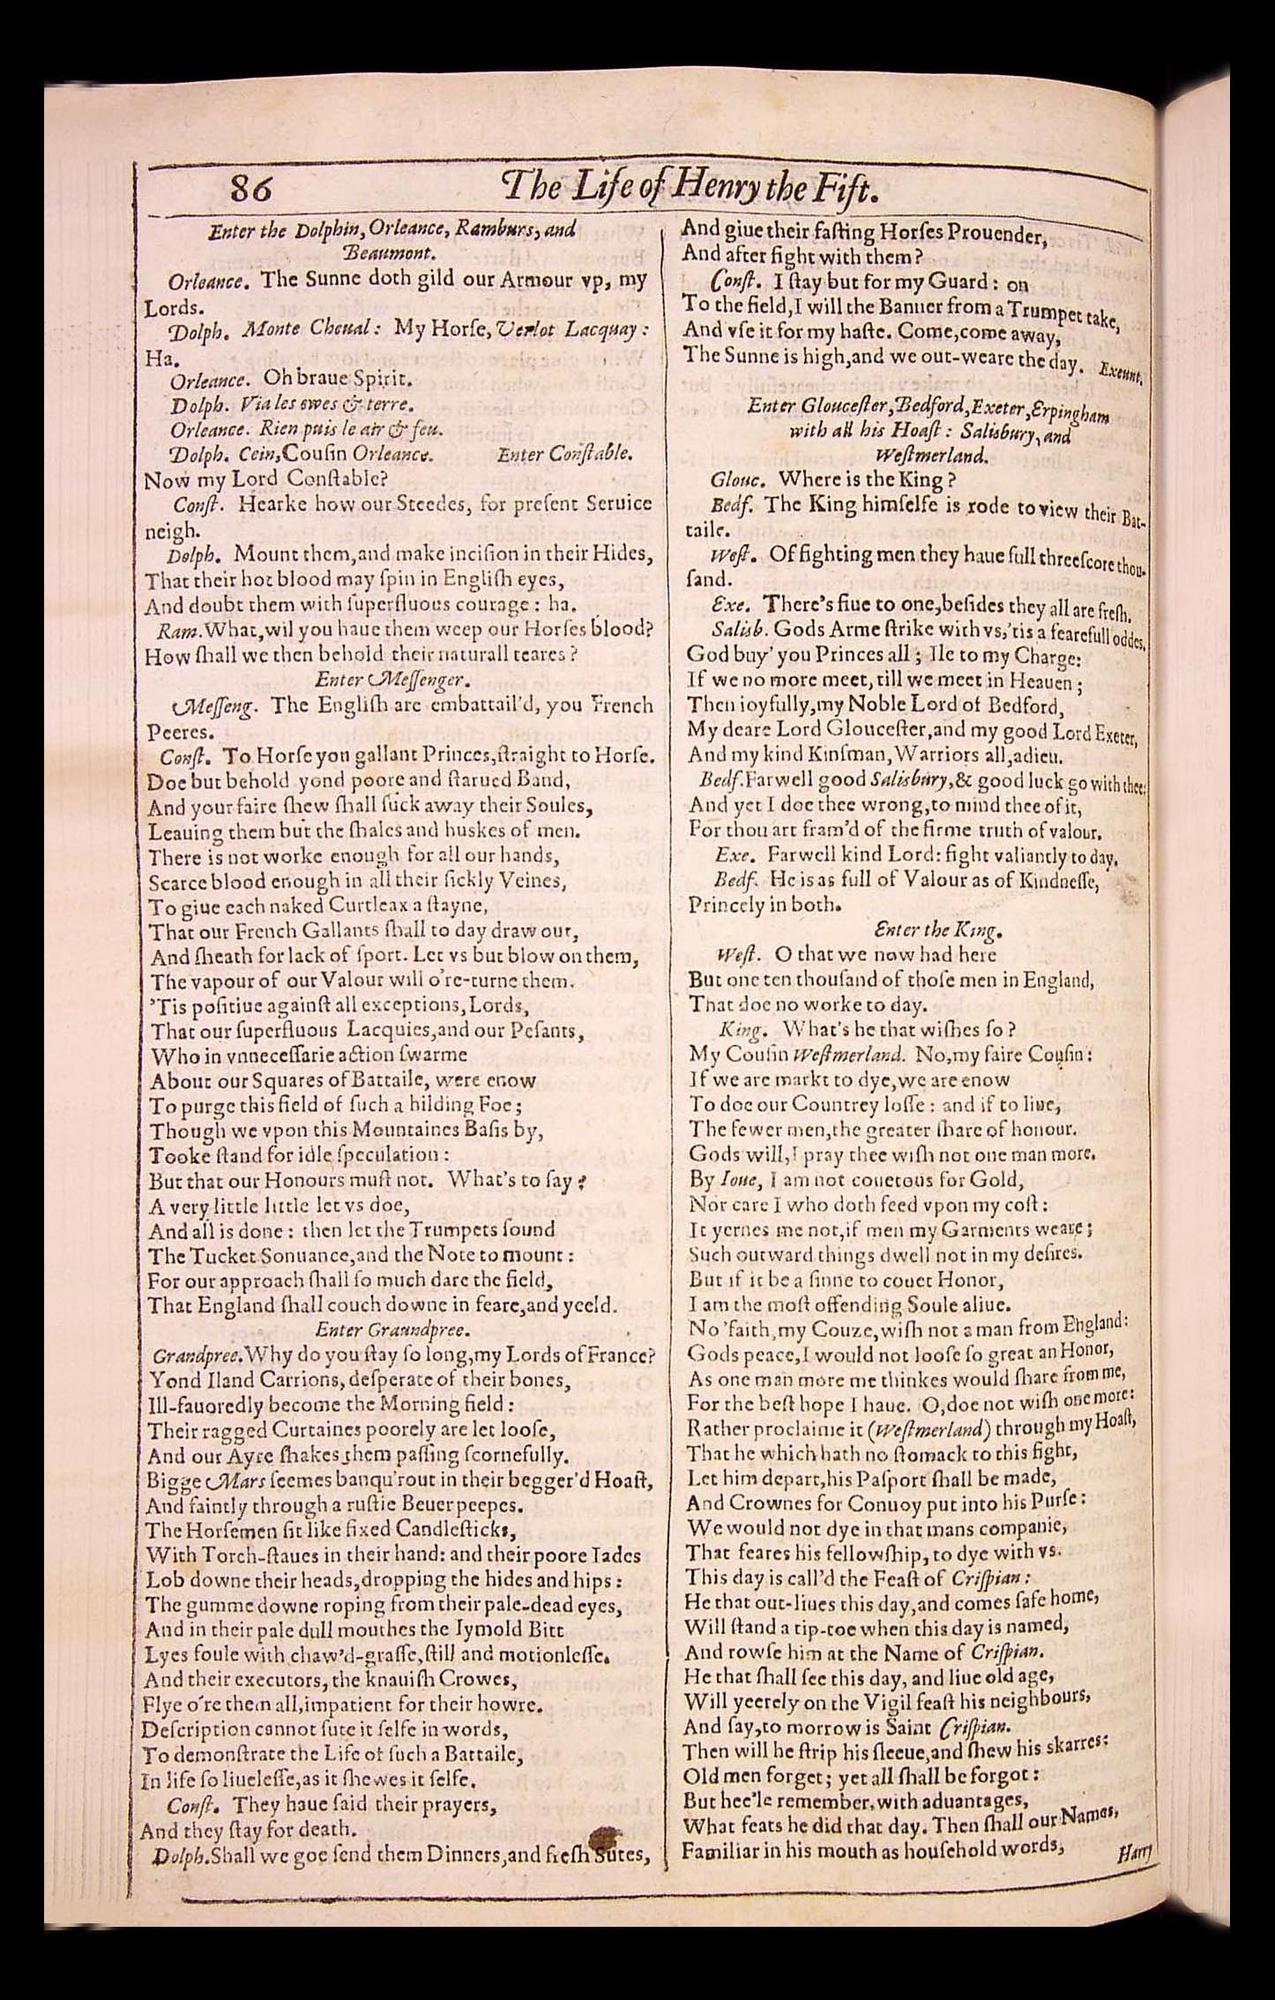 86
The Life of Henry the Fift.
Enter the Dolphin, Orleance, Ramburs, and
Beaumont.
Orleance. The Sunne doth gild our Armour vp, my
Lords.
Dolph. Monte Cheual: My Horſe, Verlot Lacquay:
Ha.
Orleance. Oh braue Spirit.
Dolph. Via les ewes & terre.
Orleance. Rien puis le air & feu.
Dolph. Cein, Couſin Orleance. Enter Conſtable.
Now my Lord Conſtable?
Conſt. Hearke how our Steedes, for preſent Seruice
neigh.
Dolph. Mount them, and make inciſion in their Hides,
That their hot blood may ſpin in Engliſh eyes,
And doubt them with ſuperfluous courage: ha.
Ram. What, wil you haue them weep our Horſes blood?
How ſhall we then behold their naturall teares?
Enter Meſſenger.
Meſſeng. The Engliſh are embattail'd, you French
Peeres.
Conſt. To Horſe you gallant Princes, ſtraight to Horſe.
Doe but behold yond poore and ſtarued Band,
And your faire ſhew ſhall ſuck away their Soules,
Leauing them but the ſhales and huskes of men.
There is not worke enough for all our hands,
Scarce blood enough in all their ſickly Veines,
To giue each naked Curtleax a ſtayne,
That our French Gallants ſhall to day draw out,
And ſheath for lack of ſport. Let vs but blow on them,
The vapour of our Valour will o're-turne them.
'Tis poſitiue againſt all exceptions, Lords,
That our ſuperfluous Lacquies, and our Peſants,
Who in vnneceſſarie action ſwarme
About our Squares of Battaile, were enow
To purge this field of ſuch a hilding Foe;
Though we vpon this Mountaines Baſis by,
Tooke ſtand for idle ſpeculation:
But that our Honours muſt not. What's to ſay?
A very little little let vs doe,
And all is done: then let the Trumpets ſound
The Tucket Sonuance, and the Note to mount:
For our approach ſhall ſo much dare the field,
That England ſhall couch downe in feare, and yeeld.
Enter Graundpree.
Grandpree. Why do you ſtay ſo long, my Lords of France?
Yond Iland Carrions, deſperate of their bones,
Ill-fauoredly become the Morning field:
Their ragged Curtaines poorely are let looſe,
And our Ayre ſhakes them paſſing ſcornefully.
Bigge Mars ſeemes banqu'rout in their begger'd Hoaſt,
And faintly through a ruſtie Beuer peepes.
The Horſemen ſit like fixed Candleſticks,
With Torch-ſtaues in their hand: and their poore Iades
Lob downe their heads, dropping the hides and hips:
The gumme downe roping from their pale-dead eyes,
And in their pale dull mouthes the Iymold Bitt
Lyes foule with chaw'd-graſſe, ſtill and motionleſſe.
And their executors, the knauiſh Crowes,
Flye o're them all, impatient for their howre.
Deſcription cannot ſute it ſelfe in words,
To demonſtrate the Life of ſuch a Battaile,
In life ſo liueleſſe, as it ſhewes it ſelfe.
Conſt. They haue ſaid their prayers,
And they ſtay for death.
Dolph. Shall we goe ſend them Dinners, and freſh Sutes,
And giue their faſting Horſes Prouender,
And after fight with them?
Conſt. I ſtay but for my Guard: on
To the field, I will the Banner from a Trumpet take,
And vſe it for my haſte. Come, come away,
The Sunne is high, and we out-weare the day. Exeunt.
Enter Glouceſter, Bedford, Exeter, Erpingham
with all his Hoaſt: Salisbury, and
Weſtmerland.
Glouc. Where is the King?
Bedf. The King himſelfe is rode to view their Bat-
taile.
Weſt. Of fighting men they haue full threeſcore thou-
ſand.
Exe. There's fiue to one, beſides they all are freſh.
Salisb. Gods Arme ſtrike with vs, 'tis a fearefull oddes.
God buy' you Princes all; Ile to my Charge:
If we no more meet, till we meet in Heauen;
Then ioyfully, my Noble Lord of Bedford,
My deare Lord Glouceſter, and my good Lord Exeter,
And my kind Kinſman, Warriors all, adieu.
Bedf. Farwell good Salisbury, & good luck go with thee:
And yet I doe thee wrong, to mind thee of it,
For thou art fram'd of the firme truth of valour.
Exe. Farwell kind Lord: fight valiantly to day.
Bedf. He is as full of Valour as of Kindneſſe,
Princely in both.
Enter the King.
Weſt. O that we now had here
But one ten thouſand of thoſe men in England,
That doe no worke to day.
King. What's he that wiſhes ſo?
My Couſin Weſtmerland. No, my faire Couſin:
If we are markt to dye, we are enow
To doe our Countrey loſſe: and if to liue,
The fewer men, the greater ſhare of honour.
Gods will, I pray thee wiſh not one man more.
By Ioue, I am not couetous for Gold,
Nor care I who doth feed vpon my coſt:
It yernes me not, if men my Garments weare;
Such outward things dwell not in my deſires.
But if it be a ſinne to couet Honor,
I am the moſt offending Soule aliue.
No 'faith, my Couze, wiſh not a man from England:
Gods peace, I would not looſe ſo great an Honor,
As one man more me thinkes would ſhare from me,
For the beſt hope I haue. O, doe not wiſh one more:
Rather proclaime it (Weſtmerland) through my Hoaſt,
That he which hath no ſtomack to this fight,
Let him depart, his Paſport ſhall be made,
And Crownes for Conuoy put into his Purſe:
We would not dye in that mans companie,
That feares his fellowſhip, to dye with vs.
This day is call'd the Feaſt of Criſpian:
He that out-liues this day, and comes ſafe home,
Will ſtand a tip-toe when this day is named,
And rowſe him at the Name of Criſpian.
He that ſhall ſee this day, and liue old age,
Will yeerely on the Vigil feaſt his neighbours,
And ſay, to morrow is Saint Criſpian.
Then will he ſtrip his ſleeue, and ſhew his skarres:
Old men forget; yet all ſhall be forgot:
But hee'le remember, with aduantages,
What feats he did that day. Then ſhall our Names,
Familiar in his mouth as houſehold words,
Harry